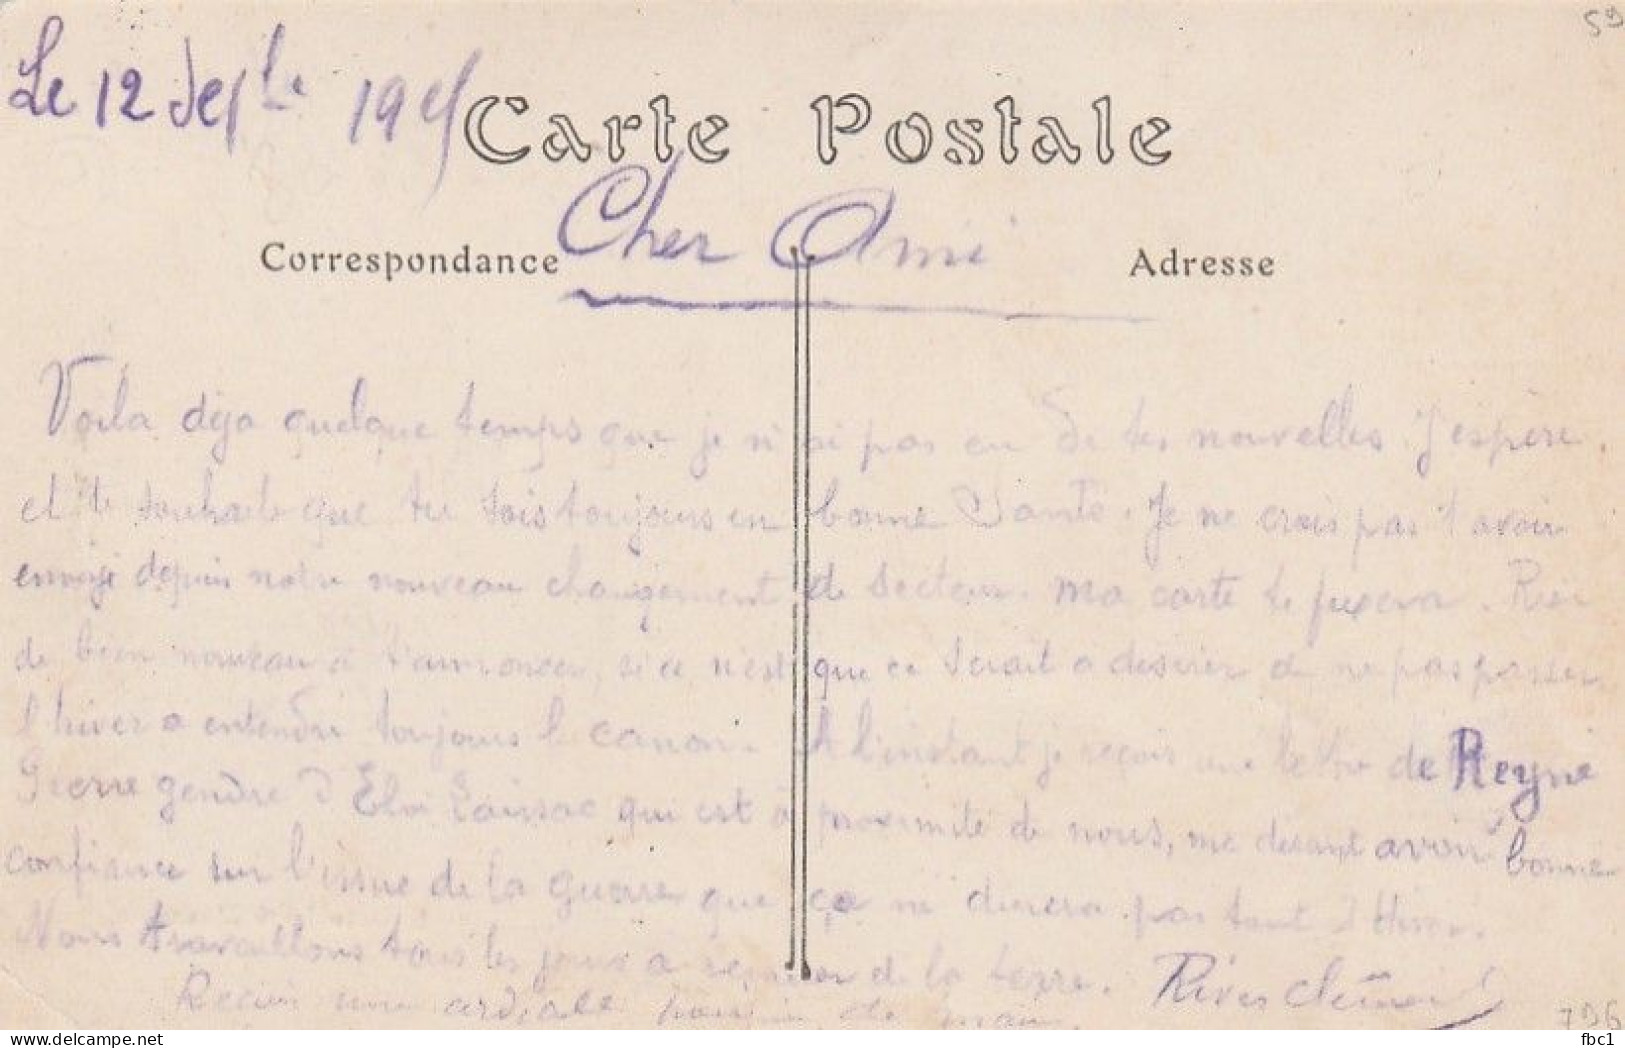 59
Le 12 Septbre 1915
Carte Postale
Correspondance Cher Ami Adresse
Voila deja quelque temps que je n'ai pas eu de tes nouvelles. J'espère
et te souhaite que tu sois toujours en bonne Santé. Je ne crois pas t'avoir
envoyé depuis notre nouveau changement de secteur. Ma carte te fixera. Rien
de bien nouveau à t'annoncer, si ce n'est que ce serait a desirer de ne pas passer
l'hiver a entendre toujours le canon. A l'instant je reçois une lettre de Reyne
Pierre gendre d'Eloi qui est à proximité de nous, me disant avoir bonne
confiance sur l'issue de la guerre que ça ne durera pas tout l'Hiver.
Nous travaillons tous les jours a de la terre. Rives Clément
Reçois une cordiale poignée de main.
796
fbc1